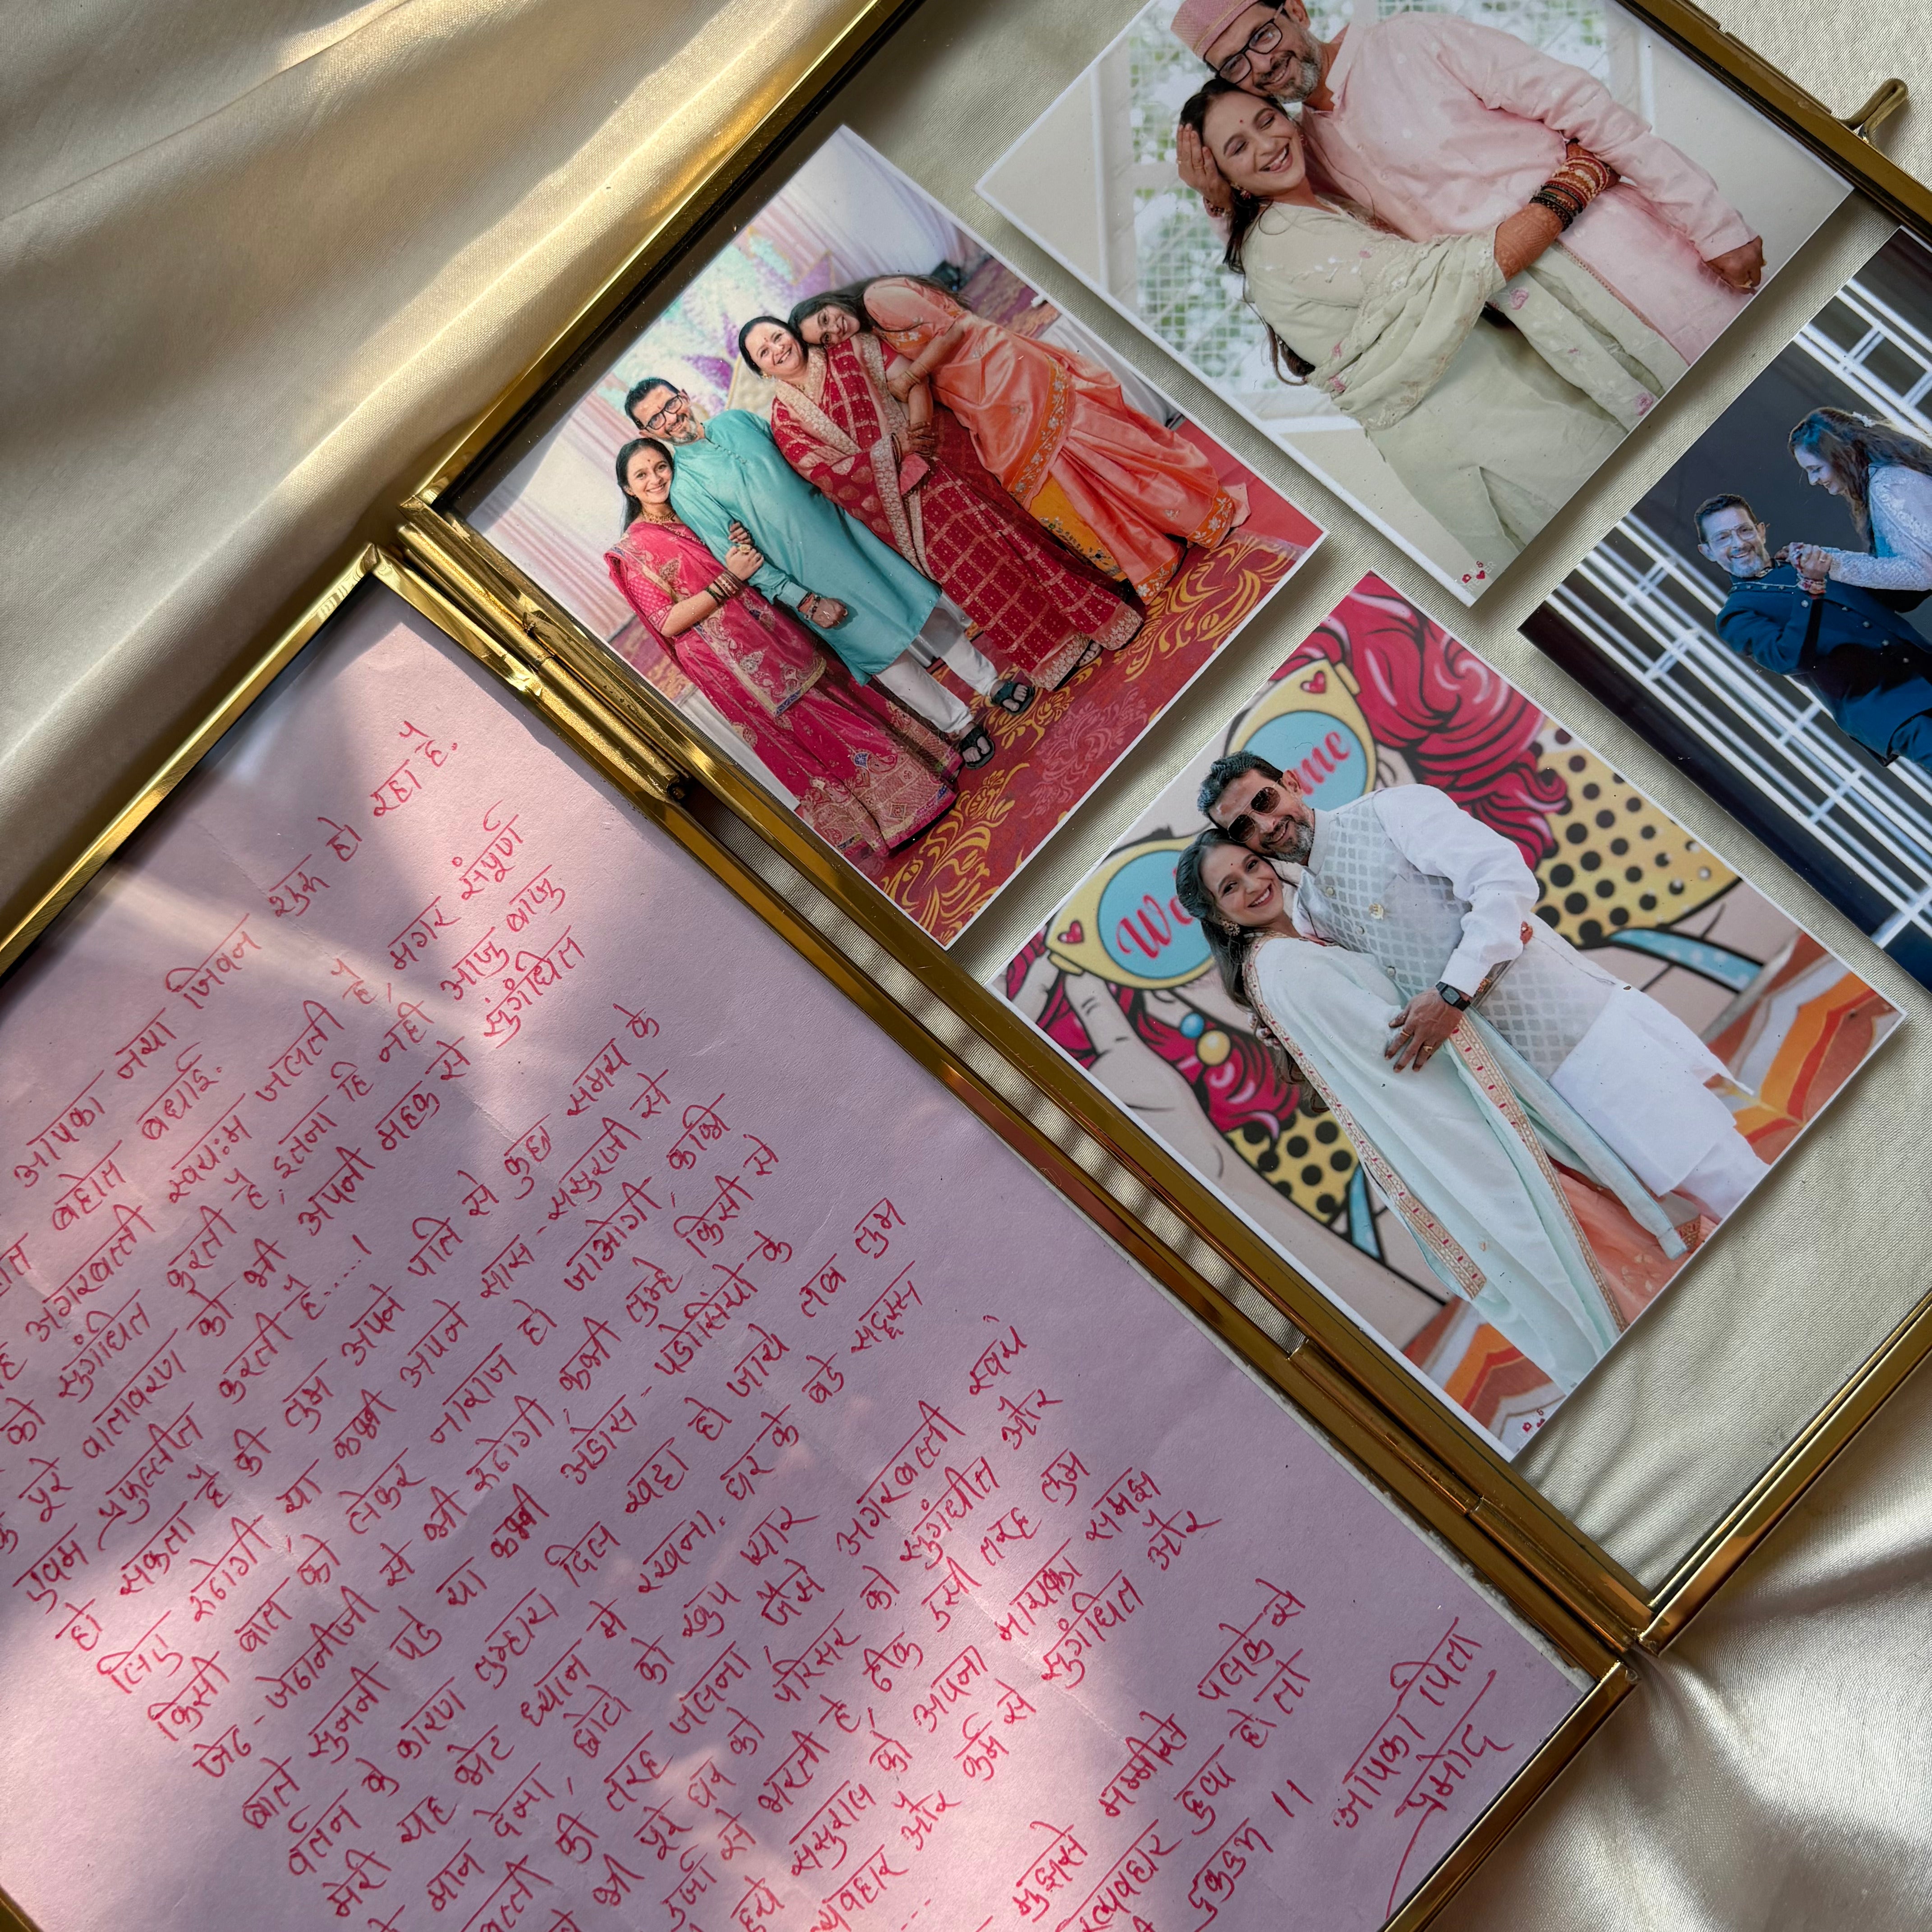 आपका नया जिवन शुरू हो रहा है.
बहोत बधाई.
अगरबत्ती स्वयःम जलती है, मगर संपूर्ण
को सुगंधित करती है, इतना हि नही आजु बाजु
पूरे वातावरण को भी अपनी महक से सुंगंधित
एवम प्रफुल्लीत करती है....!
हो सकता है की तुम अपने पति से कुछ समय के
लिए रुठोगी या कभी अपने सास-ससुरजी से
किसी बात को लेकर नाराज हो जाओगी, कभि
जेठ-जेठानीजी से भी रुठोगी, कभी तुम्हे किसी से
बाते सुननी पडे या कभी अडोस-पडोसियो के
वर्तन के कारण तुम्हारा दिल खट्टा हो जाये तब तुम
मेरी यह भेट ध्यान मे रखना. घर के बडे सद्दस्य
मान देना, छोटो को खुप प्यार
की तरह जलना, जैसे अगरबत्ती स्वयं
भी पूरे घर को परिसर को सुगंधीत और
उर्जा से भरती है, ठीक उसी तरह तुम
ससुराल को अपना मायका समझ
व्यवहार और कर्म से सुगंधित और
....
मुझसे मम्मीसे पलकसे
हुवा हो तो
!!
आपका पिता
प्रमोद
We me